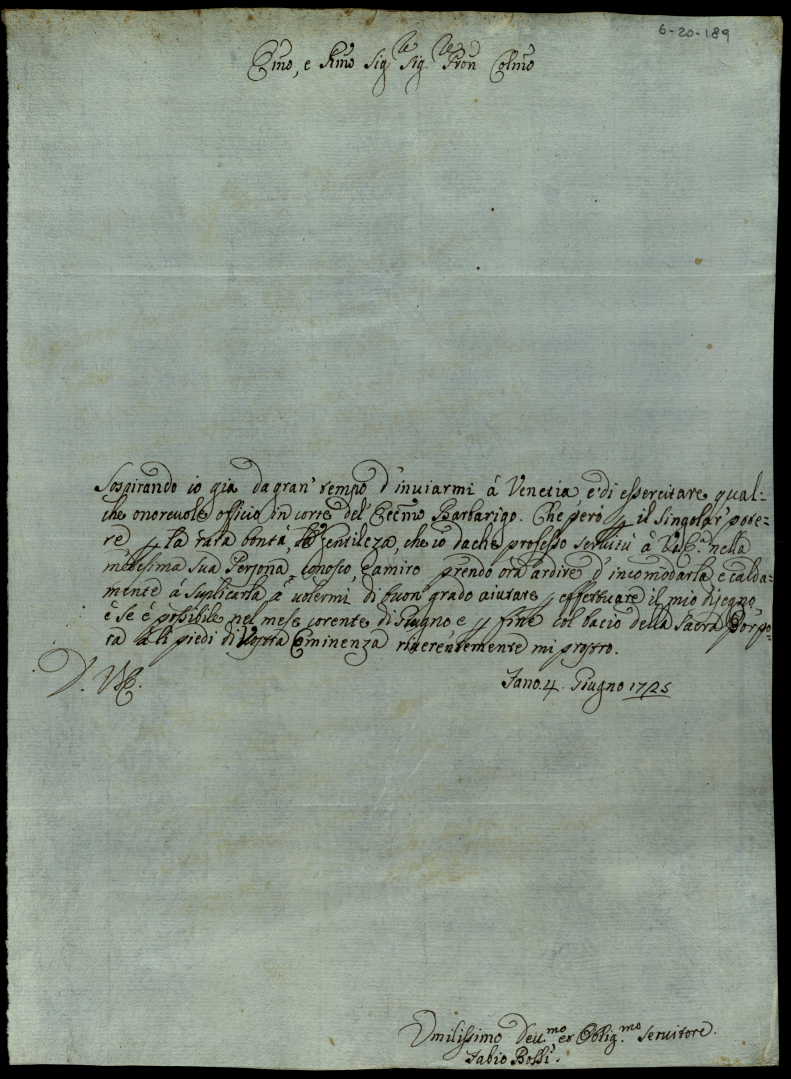 6-20-189
Em̃o, e Rm̃o Sig.re Sig.re Pron Colm̃o
Sospirando io già da gran' tempo d'inviarmi à Venetia, e di essercitare qual=
che onorevole officio in corte del' Ecc̃mo Barbarigo. Che però p il singolar' pote=
re p la rara bontà, e gentileza, che io da che professo servitù à V. E.a nella
medesima sua Persona conosco, e amiro prendo ora ardire d'incomodarla e calda=
mente à suplicarla à volermi di buon' grado aiutare p effettuare il mio disegno
e se è possibile nel mese corente di Giugno e p fine col bacio della Sacra Porpo=
ra à li piedi di Vostra Eminenza riverentemente mi prostro.
D. V. E.
Fano. 4. Giugno 1725
Umilissimo Deu.mo et Oblig.mo Servitore.
Fabio Bossi.